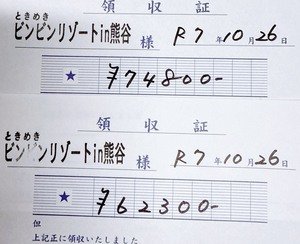 領収証
ときめき
ピンピンリゾートin熊谷 様 R7年10月26日
★ ¥774800-
領収証
ときめき
ピンピンリゾートin熊谷 様 R7年10月26日
★ ¥62300-
但
上記正に領収いたしました